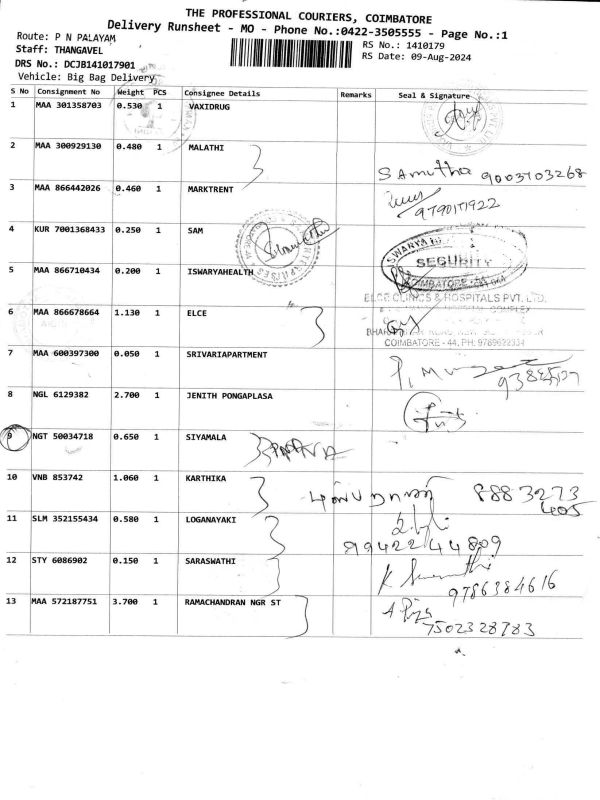 THE PROFESSIONAL COURIERS, COIMBATORE
Delivery Runsheet - MO - Phone No.:0422-3505555 - Page No.:1
Route: P N PALAYAM
RS No.: 1410179
Staff: THANGAVEL
RS Date: 09-Aug-2024
DRS No.: DCJB141017901
Vehicle: Big Bag Delivery
S No Consignment No Weight PCS Consignee Details Remarks Seal & Signature
1 MAA 301358703 0.530 1 VAXIDRUG
2 MAA 300929130 0.480 1 MALATHI
Samutha 9003703268
3 MAA 866442026 0.460 1 MARKTRENT
9790177922
4 KUR 7001368433 0.250 1 SAM
SECURITY
5 MAA 866710434 0.200 1 ISWARYAHEALTH
COIMBATORE
ELCE CLINICS & HOSPITALS PVT. LTD.
COMPLEX
6 MAA 866678664 1.130 1 ELCE
COIMBATORE - 44. PH: 9789632334
7 MAA 600397300 0.050 1 SRIVARIAPARTMENT
8 NGL 6129382 2.700 1 JENITH PONGAPLASA
9 NGT 50034718 0.650 1 SIYAMALA
10 VNB 853742 1.060 1 KARTHIKA
8883273
405
11 SLM 352155434 0.580 1 LOGANAYAKI
9942244809
12 STY 6086902 0.150 1 SARASWATHI
9786384616
13 MAA 572187751 3.700 1 RAMACHANDRAN NGR ST
7502328783